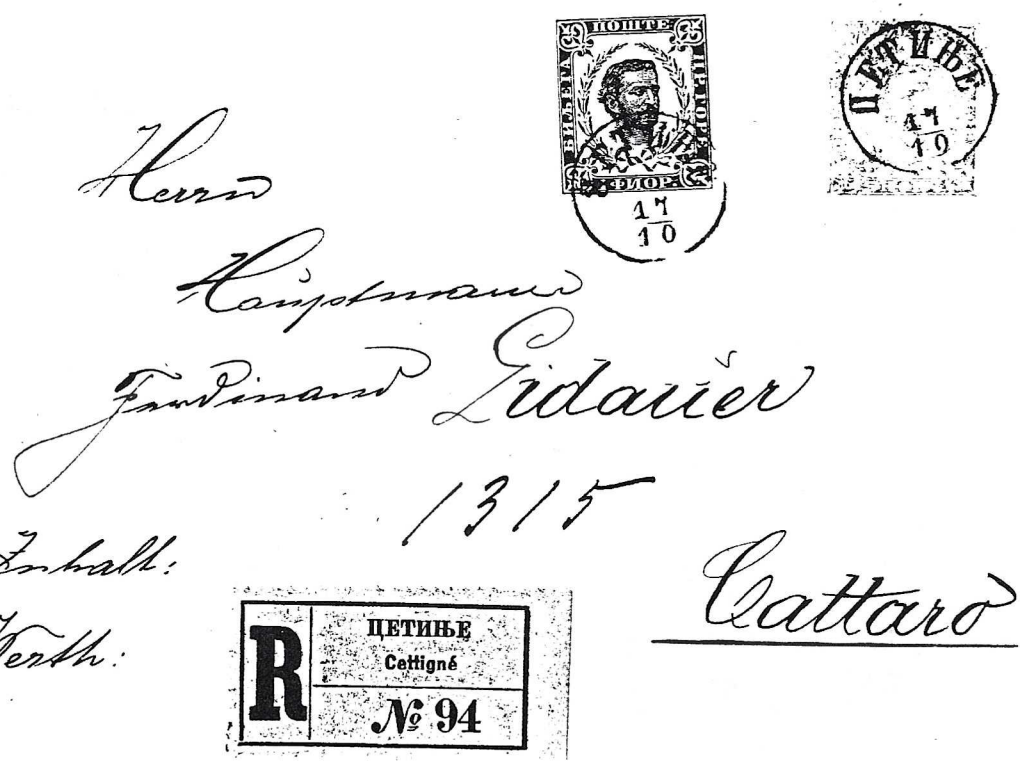 ПОШТЕ
БИЉЕГА
ЦР. ГОРЕ
ФИОР.
17
10
ЦЕТИЊЕ
17
10
Herrn
Hauptmann
Ferdinand Lidauer
1315
Inhalt:
Werth:
Cattaro
R
ЦЕТИЊЕ
Cettigné
№ 94